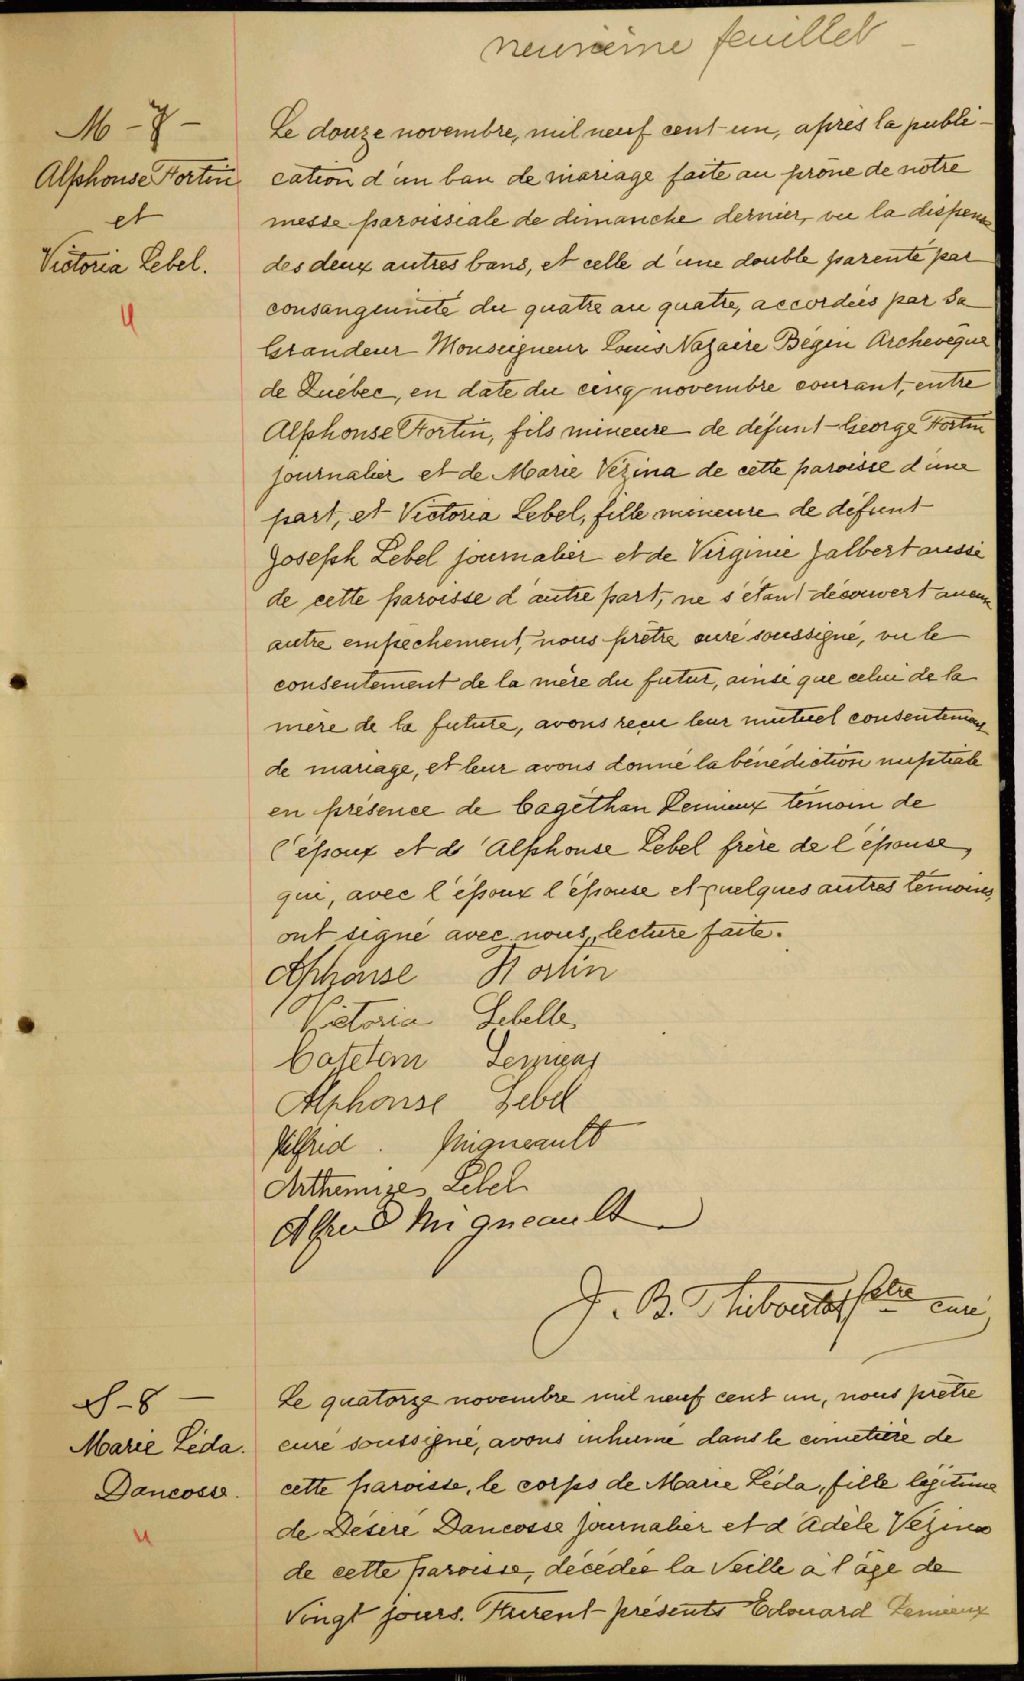 neuvième feuillet -
M - 7 -
Alphonse Fortin
et
Victoria Lebel.
Le douze novembre, mil neuf cent un, après la publi-
cation d'un ban de mariage faite au prône de notre
messe paroissiale de dimanche dernier, vu la dispense
des deux autres bans, et celle d'une double parenté par
consanguinité du quatre au quatre, accordées par Sa
Grandeur Monseigneur Louis Nazaire Bégin Archevêque
de Québec, en date du cinq novembre courant, entre
Alphonse Fortin, fils mineure de défunt George Fortin
journalier et de Marie Vézina de cette paroisse d'une
part, et Victoria Lebel, fille mineure de défunt
Joseph Lebel journalier et de Virginie Jalbert aussi
de cette paroisse d'autre part, ne s'étant découvert aucun
autre empêchement, nous prêtre curé soussigné, vu le
consentement de la mère du futur, ainsi que celui de la
mère de la future, avons reçu leur mutuel consentement
de mariage, et leur avons donné la bénédiction nuptiale
en présence de Cagéthan Lemieux témoin de
l'époux et de Alphonse Lebel frère de l'épouse,
qui, avec l'époux l'épouse et quelques autres témoins,
ont signé avec nous, lecture faite.
Alphonse Fortin
Victoria Lebelle
Cajetan Lemieux
Alphonse Lebel
Wilfrid Migneault
Arthemizes Lebel
Alfred Migneault
J. B. Thiboutot Ptre curé
S - 8 -
Marie Léda.
Dancosse.
Le quatorze novembre mil neuf cent un, nous prêtre
curé soussigné, avons inhumé dans le cimetière de
cette paroisse, le corps de Marie Léda, fille légitime
de Déseré Dancosse journalier et d'Adèle Vézina
de cette paroisse, décédée la veille à l'âge de
vingt jours. Furent présents Edouard Lemieux